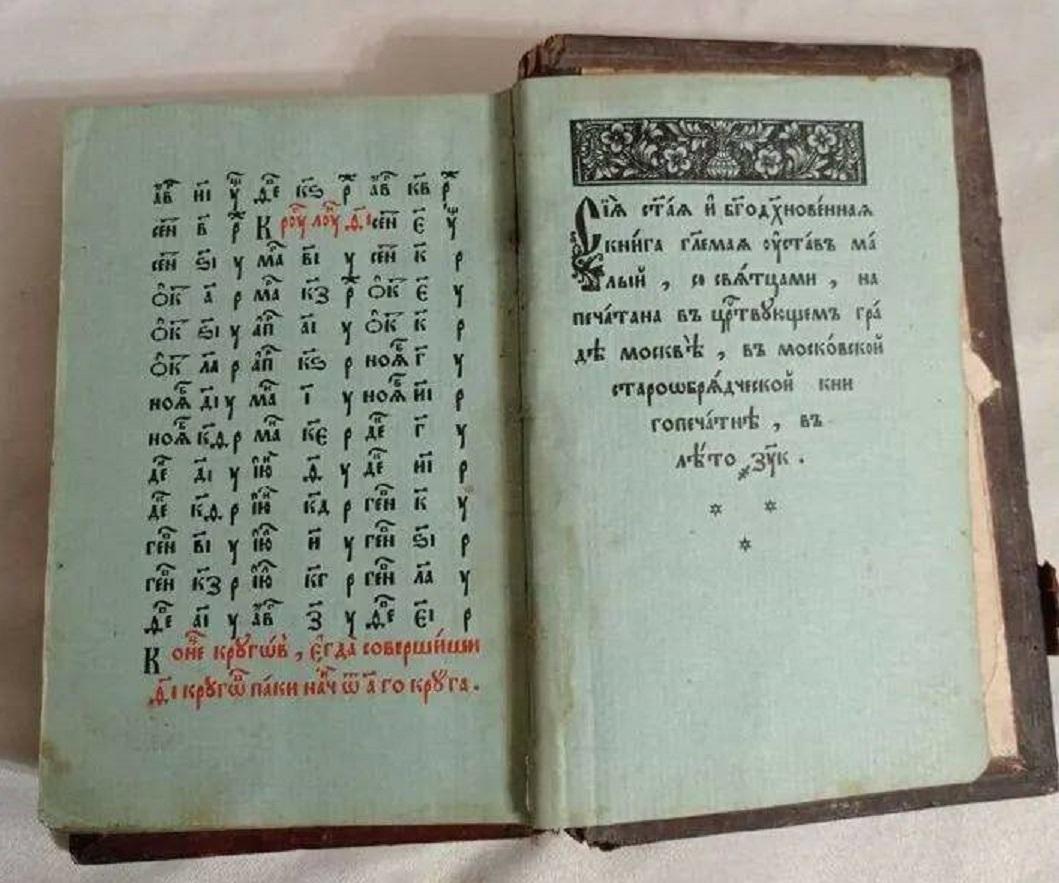 а҃в҇ н҃і ү҃ ѳ҃е к҃ѕ р҃ а҃в҇ к҃в р҃
се҃н в҃ р҃ К роу҃ лоу҃ ѳ҃і се҃н є҃ ү҃
се҃н ѕ҃і у ма҃ в҃і у се҃н к҃ р
ѻ҆к҃ а҃ р ма҃ к҃з р҃ ѻ҆к҃ є҃ у
ѻ҆к҃ ѕ҃і у а҆п҃ а҃і у ѻ҆к҃ к҃ р
ѻ҆к҃ л҃а р а҆п҃ к҃ѕ р ноѧ҃ г҃ у
ноѧ҃ д҃і у ма҃ і҃ у ноѧ҃ и҃і р
ноѧ҃ к҃ѳ р ма҃ к҃є р де҃ г҃ у
де҃ д҃і у і҆ю҃ ѳ҃ у де҃ и҃і р
де҃ к҃ѳ р і҆ю҃ к҃д р ген҃ к҃ у
ген҃ в҃і у і҆ю҃ и҃ у ген҃ ѕ҃і р
ген҃ к҃з р і҆ю҃ к҃г р ген҃ л҃а у
ѳе҃ а҃і у а҆в҃ з҃ у ѳе҃ є҃і р
Коне҃ крꙋгѡ́в , є҆гда̀ соверши́ши
ѳ҃і крꙋгѡ҃ па́ки нач҃ ѿ а҃ го крꙋга .
Сїѧ̀ ст҃а́ѧ и҆ бг҃одх҃нове́ннаѧ
кни́га гл҃емаѧ оу҆ста́въ ма́
лый , со свѧ́тцами , на
печа́тана въ цр҃твующемъ гра́
дѣ москвѣ̀ , въ моско́вской
староѡбрѧ́дческой кни
гопеча́тнѣ , въ
лѣ́то ҂зу҃к .